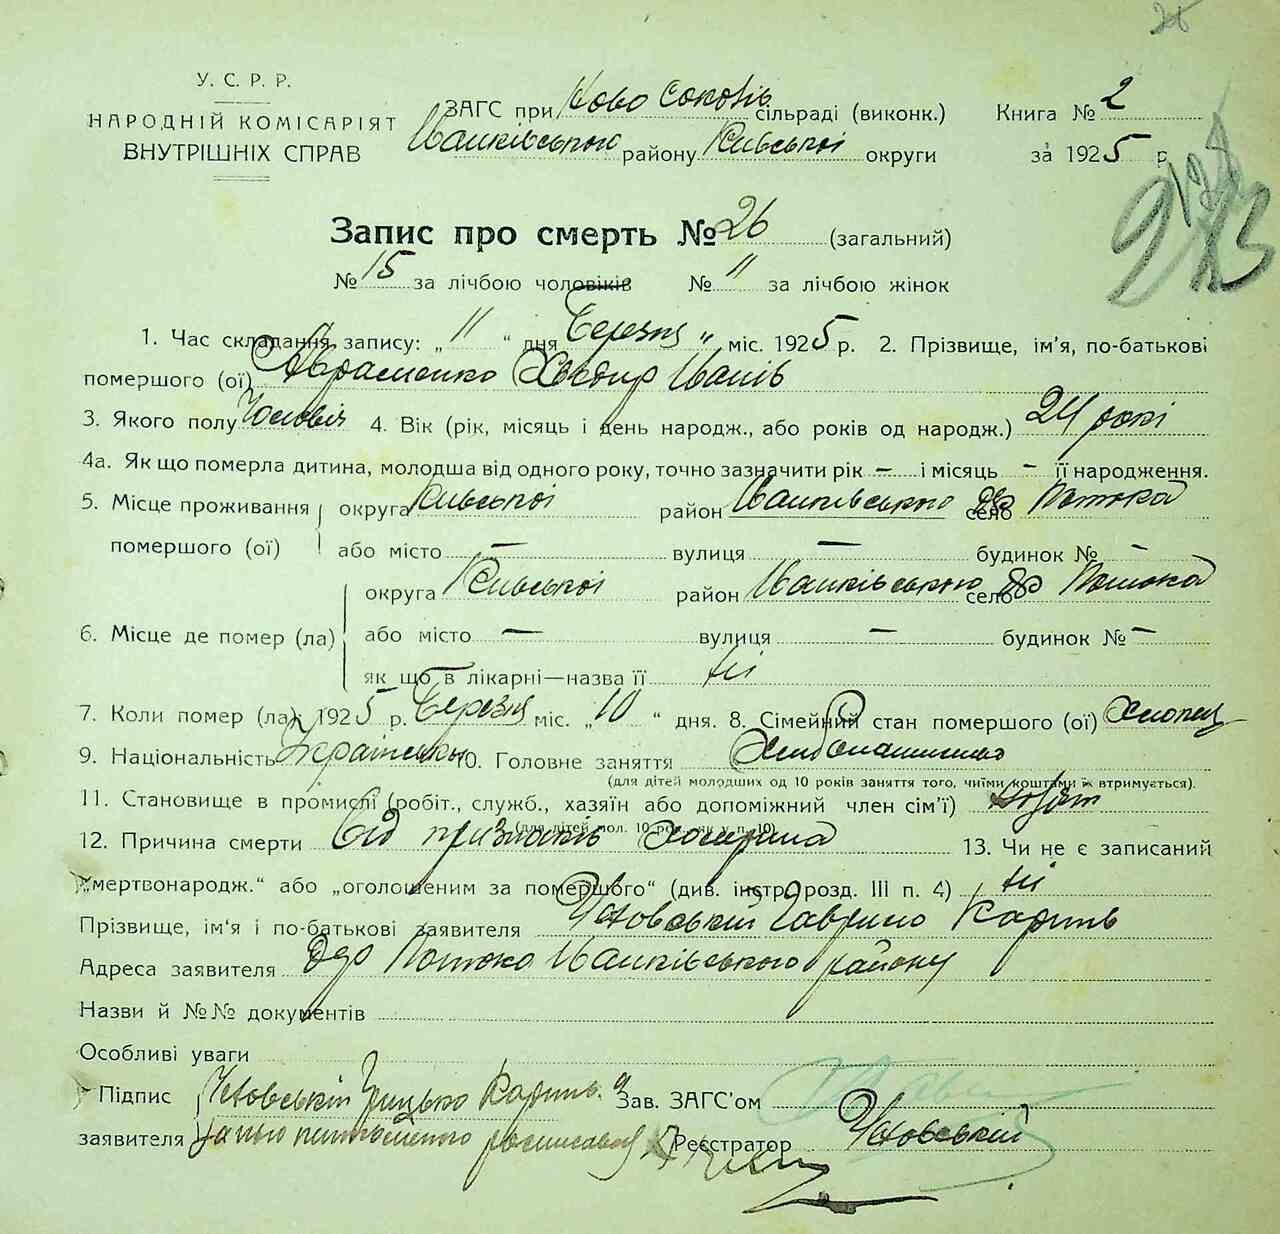 У. С. Р. Р.
НАРОДНІЙ КОМІСАРІЯТ
ВНУТРІШНІХ СПРАВ
ЗАГС при Ново сільраді (виконк.)
Іванківського району Київської округи
Книга № 2
за 1925 р.
Запис про смерть № 26 (загальний)
№ 15 за лічбою чоловіків № 11 за лічбою жінок
1. Час складання запису: „ 11 “ дня Березня „ міс. 1925 р. 2. Прізвище, ім’я, по-батькові
помершого (ої) Авраменко Хведир Іванів
3. Якого полу 4. Вік (рік, місяць і день народж., або років од народж.) 24 рокі
4а. Як що померла дитина, молодша від одного року, точно зазначити рік – і місяць – її народження.
5. Місце проживання округа Київської район Іванківського село Потока
помершого (ої) або місто — вулиця — будинок № –
округа Київської район Іванківського село Потока
6. Місце де помер (ла) або місто — вулиця — будинок № –
як що в лікарні—назва її ні
7. Коли помер (ла) 1925 р. Березня міс. „ 10 “ дня. 8. Сімейний стан помершого (ої) Хлопец
9. Національність 10. Головне заняття
(для дітей молодших од 10 років заняття того, чиїми коштами їх втримується).
11. Становище в промислі (робіт., служб., хазяїн або допоміжний член сім’ї)
(для дітей мол. 10 рок. як у п. 10)
12. Причина смерти Від 13. Чи не є записаний
„мертвонародж.“ або „оголошеним за помершого“ (див. інстр. розд. III п. 4) ні
Прізвище, ім’я і по-батькові заявителя
Адреса заявителя Потока Іванківського району
Назви й №№ документів
Особливі уваги
Підпис Грицько Зав. ЗАГС’ом
заявителя Реєстратор